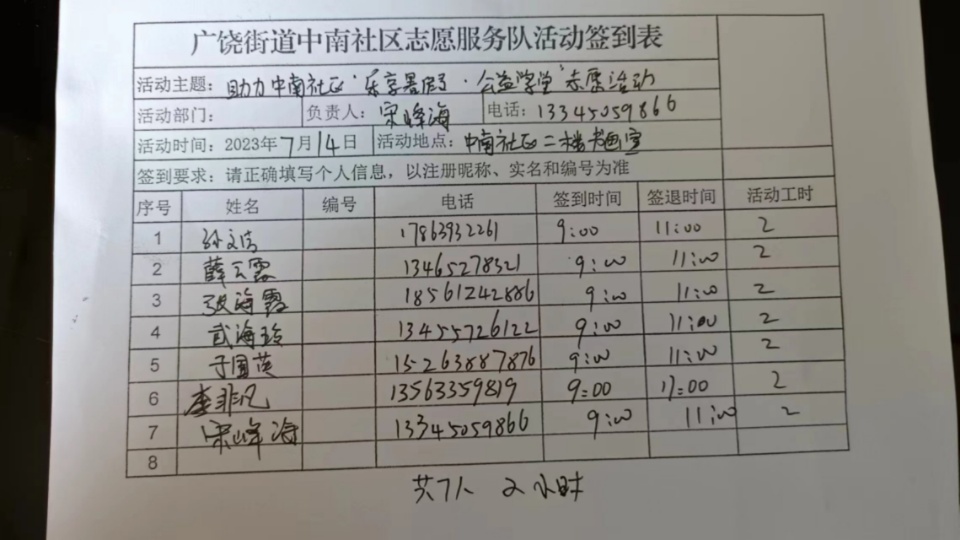 广饶街道中南社区志愿服务队活动签到表
活动主题：助力中南社区“乐享暑假·公益学堂”志愿活动
活动部门： 负责人：宋峰海 电话：13345059866
活动时间：2023年7月14日 活动地点：中南社区二楼书画室
签到要求：请正确填写个人信息，以注册昵称、实名和编号为准
序号 姓名 编号 电话 签到时间 签退时间 活动工时
1 孙文浩 17863932261 9:00 11:00 2
2 薛云霞 13465278321 9:00 11:00 2
3 张海霞 18561242886 9:00 11:00 2
4 武海玲 13455726122 9:00 11:00 2
5 于国英 15263887876 9:00 11:00 2
6 李非凡 13563359819 9:00 11:00 2
7 宋峰海 13345059866 9:00 11:00 2
8
共7人 2小时